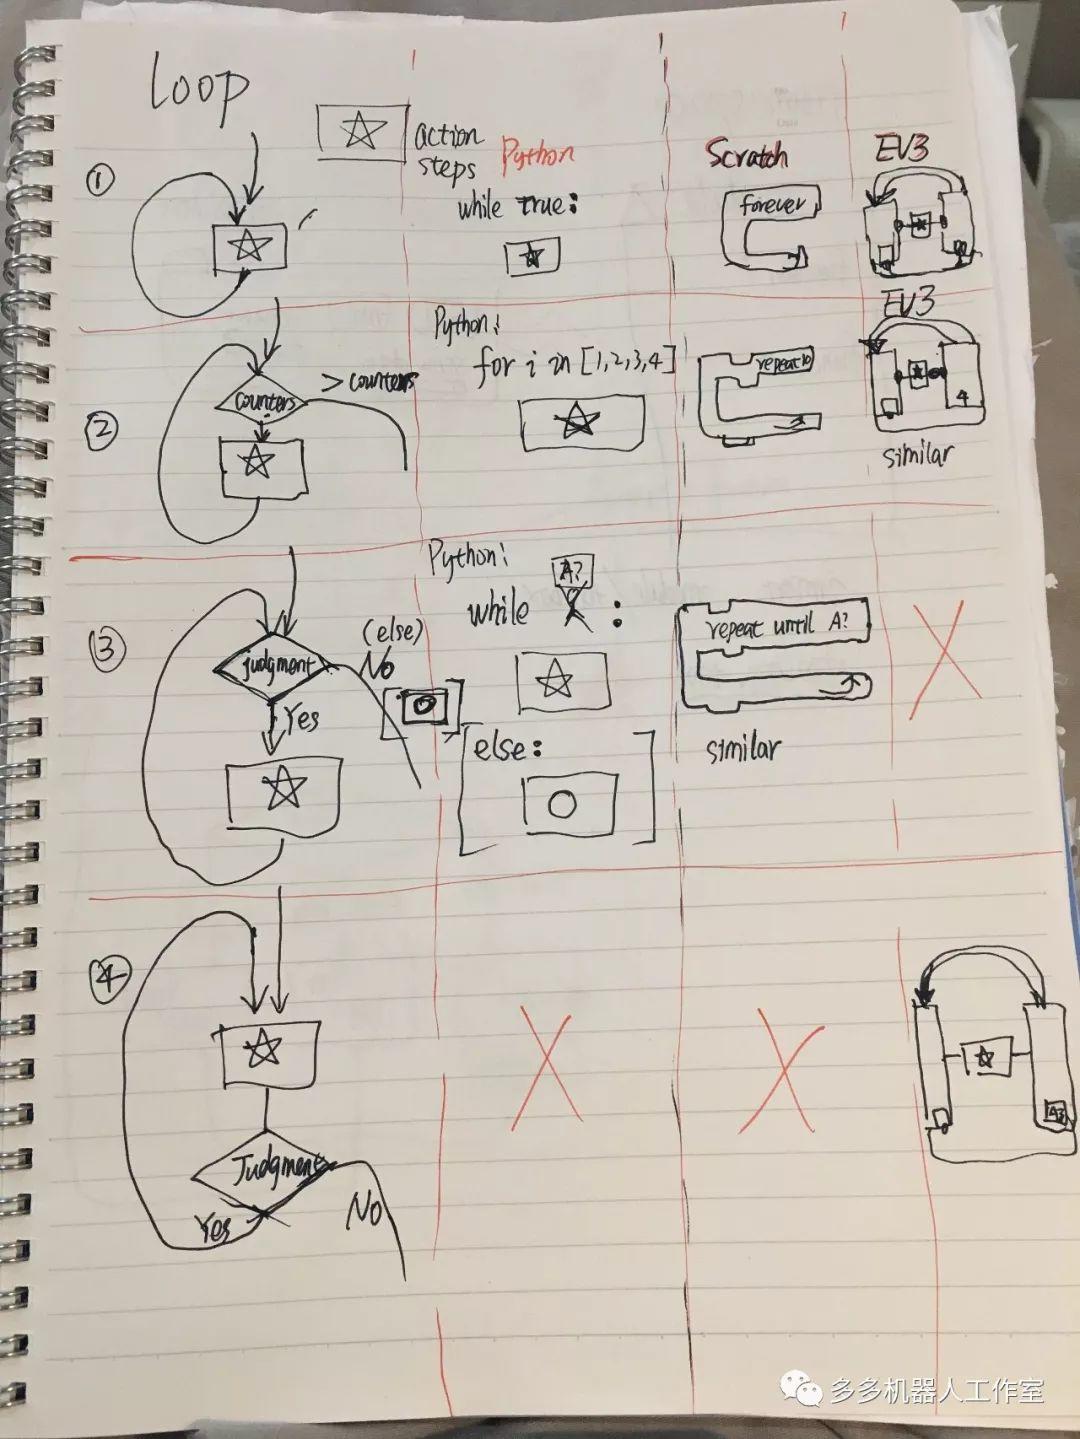 Loop
action
steps
Python
Scratch
EV3
①
while true:
forever
Python:
EV3
for i in [1,2,3,4]
repeat 10
> counters
counters
②
4
similar
Python:
A?
while X :
③
(else)
No
judgment
Yes
repeat until A?
else:
similar
④
Judgment
Yes
No
多多机器人工作室